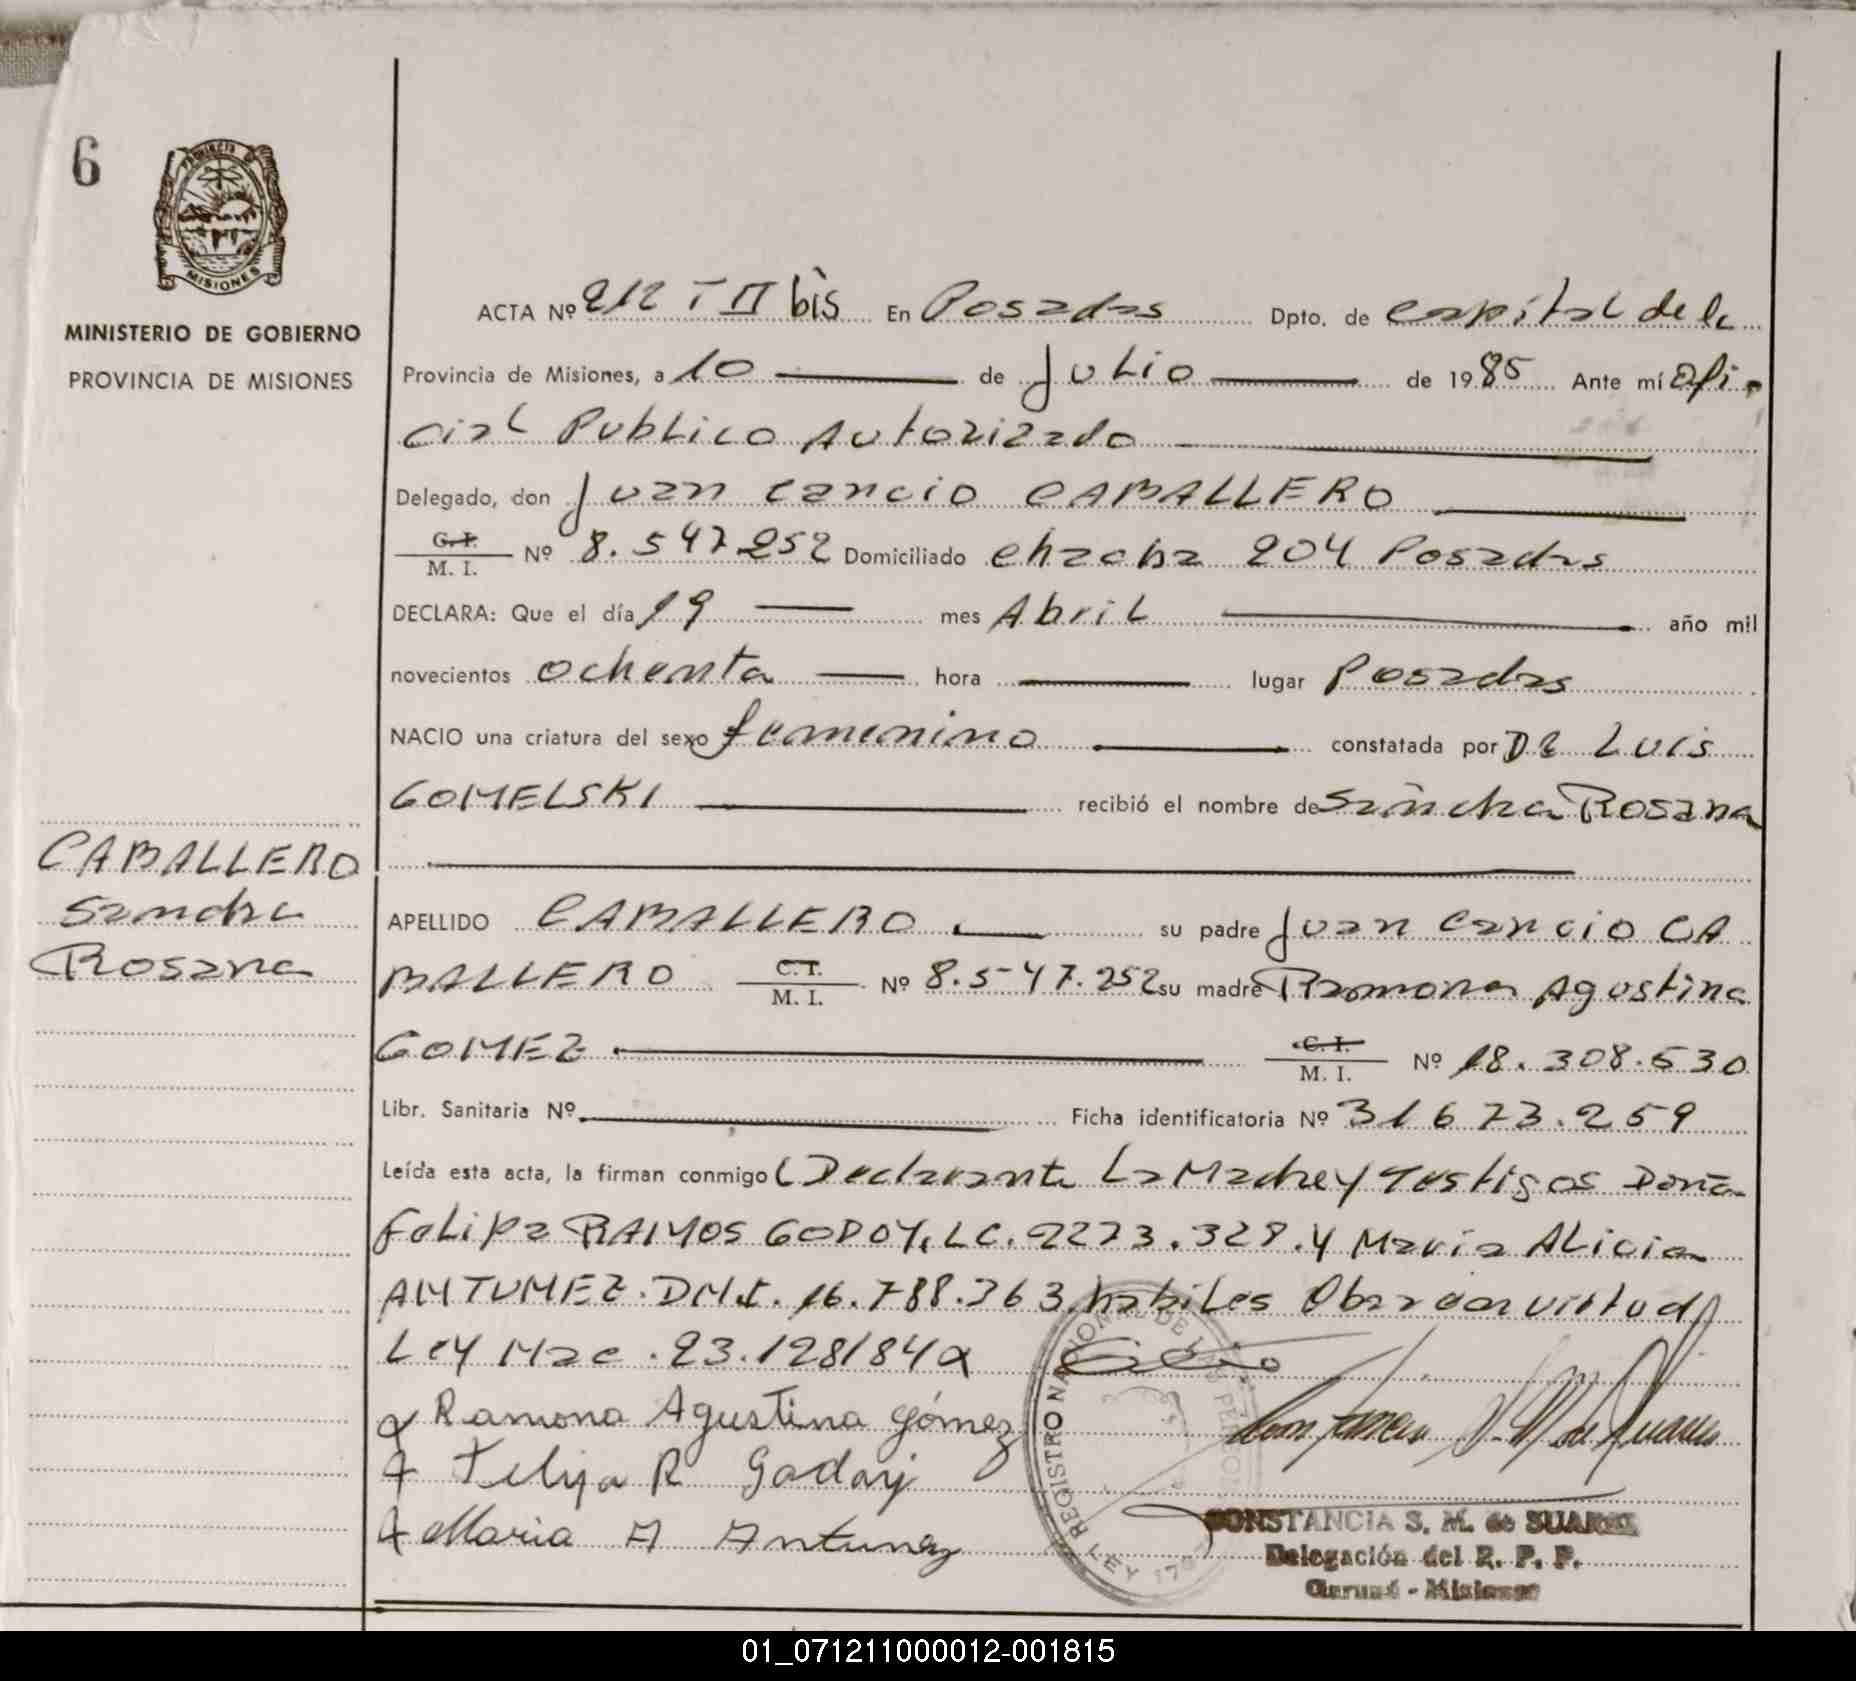 6
PROVINCIA DE
MISIONES
MINISTERIO DE GOBIERNO
PROVINCIA DE MISIONES
ACTA Nº 212 T II bis En Posadas Dpto. de Capital de la
Provincia de Misiones, a 10 de Julio de 1985 Ante mí Ofi-
cial Publico Autorizado
Delegado, don Juan Cancio CABALLERO
C.I.
M. I. Nº 8.547.252 Domiciliado Chacba 204 Posadas
DECLARA: Que el día 19 mes Abril año mil
novecientos ochenta hora lugar Posadas
NACIO una criatura del sexo femenino constatada por DR Luis
GOMELSKI recibió el nombre de Sandra Rosana
CABALLERO
Sandra
Rosana
APELLIDO CABALLERO su padre Juan Cancio CA
BALLERO C.I.
M. I. Nº 8.547.252 su madre Ramona Agustina
GOMEZ C.I.
M. I. Nº 18.308.530
Libr. Sanitaria Nº Ficha identificatoria Nº 31673.259
Leída esta acta, la firman conmigo Declarante La Madre y Testigos Doña
Felipa RAMOS GODOY, LC. 2273.328. y Maria Alicia
ANTUNEZ. DNI. 16.788.363. habiles Obrar en virtud
Ley Nac. 23.128/84
Ramona Agustina Gómez
Felipa R Godoy
Maria A Antunez
REGISTRO NACIONAL DE LAS PERSONAS
LEY
CONSTANCIA S. M. de SUAREZ
Delegación del R. P. P.
Garupá - Misiones
01_071211000012-001815